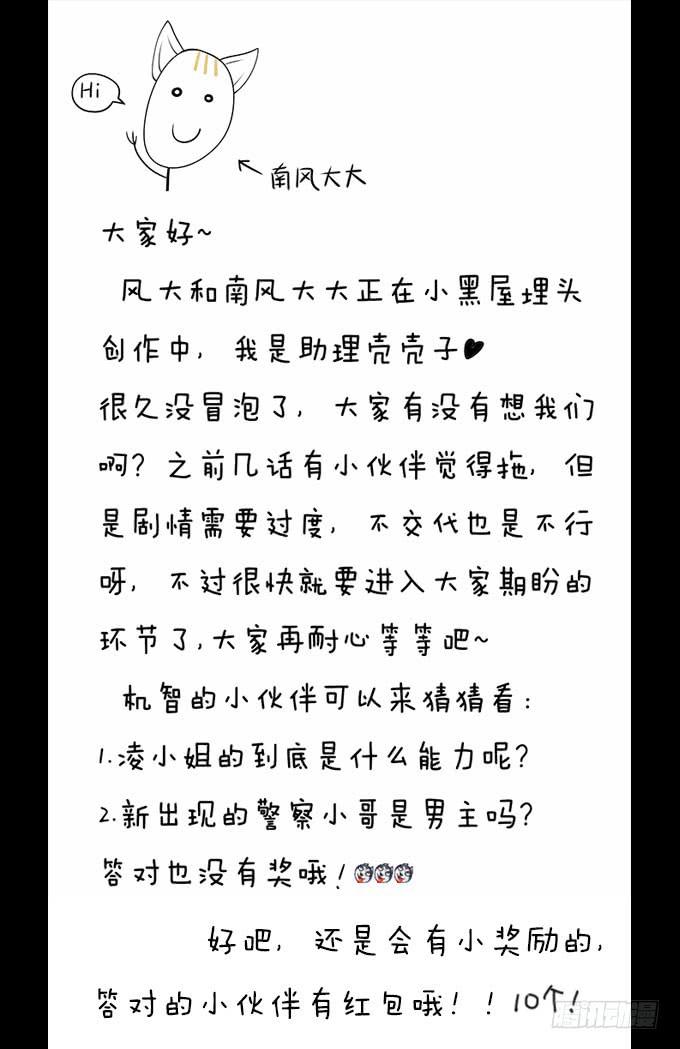 Hi
南风大大
大家好~
风大和南风大大正在小黑屋埋头
创作中，我是助理壳壳子♥
很久没冒泡了，大家有没有想我们
啊？之前几话有小伙伴觉得拖，但
是剧情需要过度，不交代也是不行
呀，不过很快就要进入大家期盼的
环节了，大家再耐心等等吧~
机智的小伙伴可以来猜猜看：
1.凌小姐的到底是什么能力呢？
2.新出现的警察小哥是男主吗？
答对也没有奖哦！
好吧，还是会有小奖励的，
答对的小伙伴有红包哦！！10个！
腾讯动漫